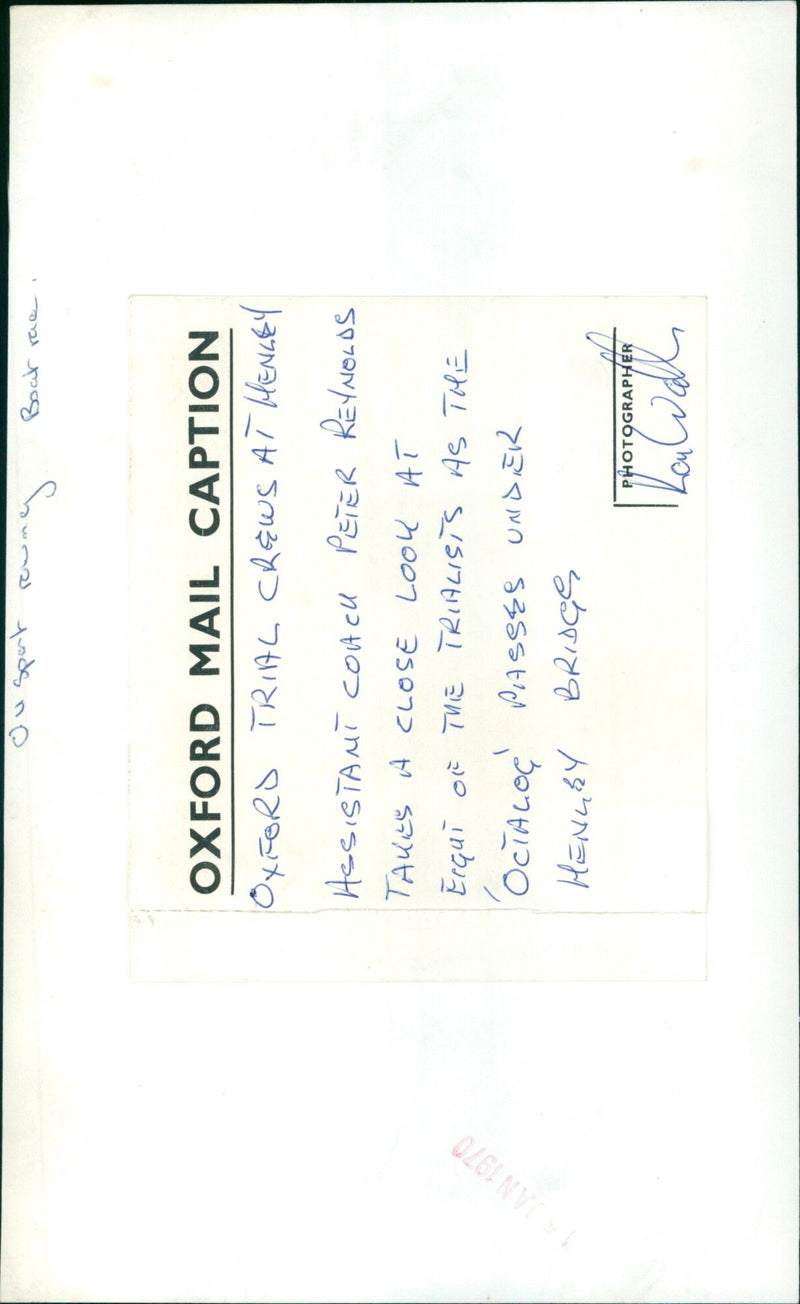 Ou Sport rowing Boat race.
OXFORD MAIL CAPTION
OXFORD TRIAL CREWS AT HENLEY
ASSISTANT COACH PETER REYNOLDS
TAKES A CLOSE LOOK AT
EIGHT OF THE TRIALISTS AS THE
'OCTALOG' PASSES UNDER
HENLEY BRIDGE
PHOTOGRAPHER
JAN 1970